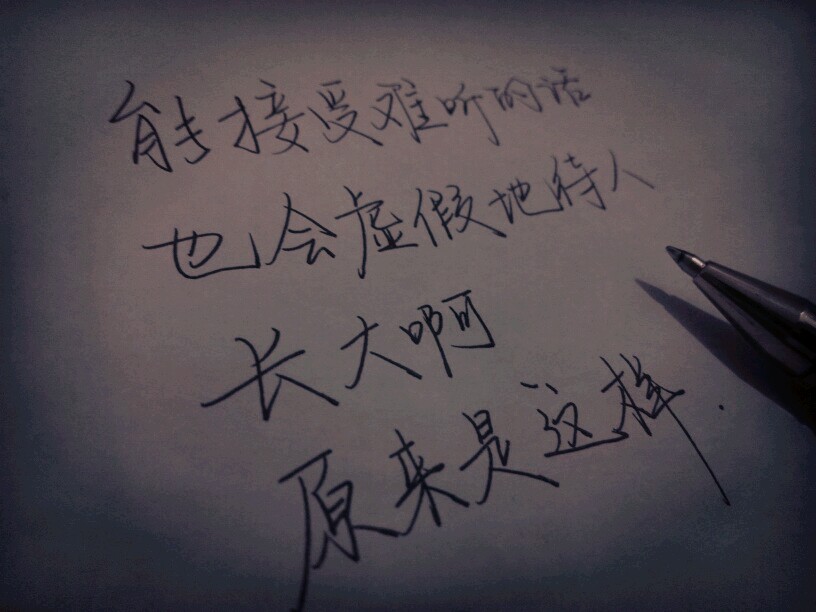 能接受难听的话
也会虚假地待人
长大啊
原来是这样.